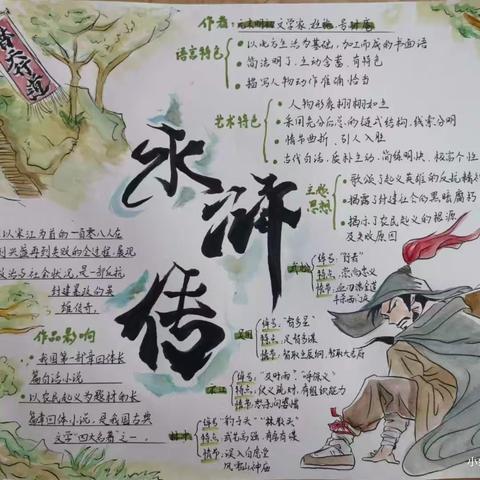 替天行道
水浒传
作者:元末明初文学家
语言特色
以北方口语为基础,加工而成的书面语
简洁明了,生动含蓄,有特色
描写人物动作准确恰当
艺术特色
人物形象栩栩如生
采用先分后总的链式结构,线索分明
情节曲折,引人入胜
古代白话,质朴生动,简练明快,极富个性
主题
思想
歌颂了起义英雄的反抗精神
揭露了封建社会的黑暗腐朽
揭示了农民起义的根源
及失败原因
以宋江为首的一百零八人在
到兴盛再到失败的全过程,展现
政治与社会状况,是一部反抗
封建暴政的英
雄传奇。
作品影响
我国第一部章回体长
篇白话小说
以农民起义为题材的长
篇章回体小说,是我国古典
文学“四大名著”之一。
武松
绰号:“行者”
特点:崇尚忠义
情节:血刃潘金莲
斗杀西门庆
吴用
绰号:“智多星”
特点:足智多谋
情节:智取生辰纲,智取大名府
宋江
绰号:“及时雨”“呼保义”
特点:仗义疏财,有组织能力
情节:怒杀阎婆惜
林冲
绰号:“豹子头”
特点:武艺高强,有勇有谋
情节:误入白虎堂
风雪山神庙